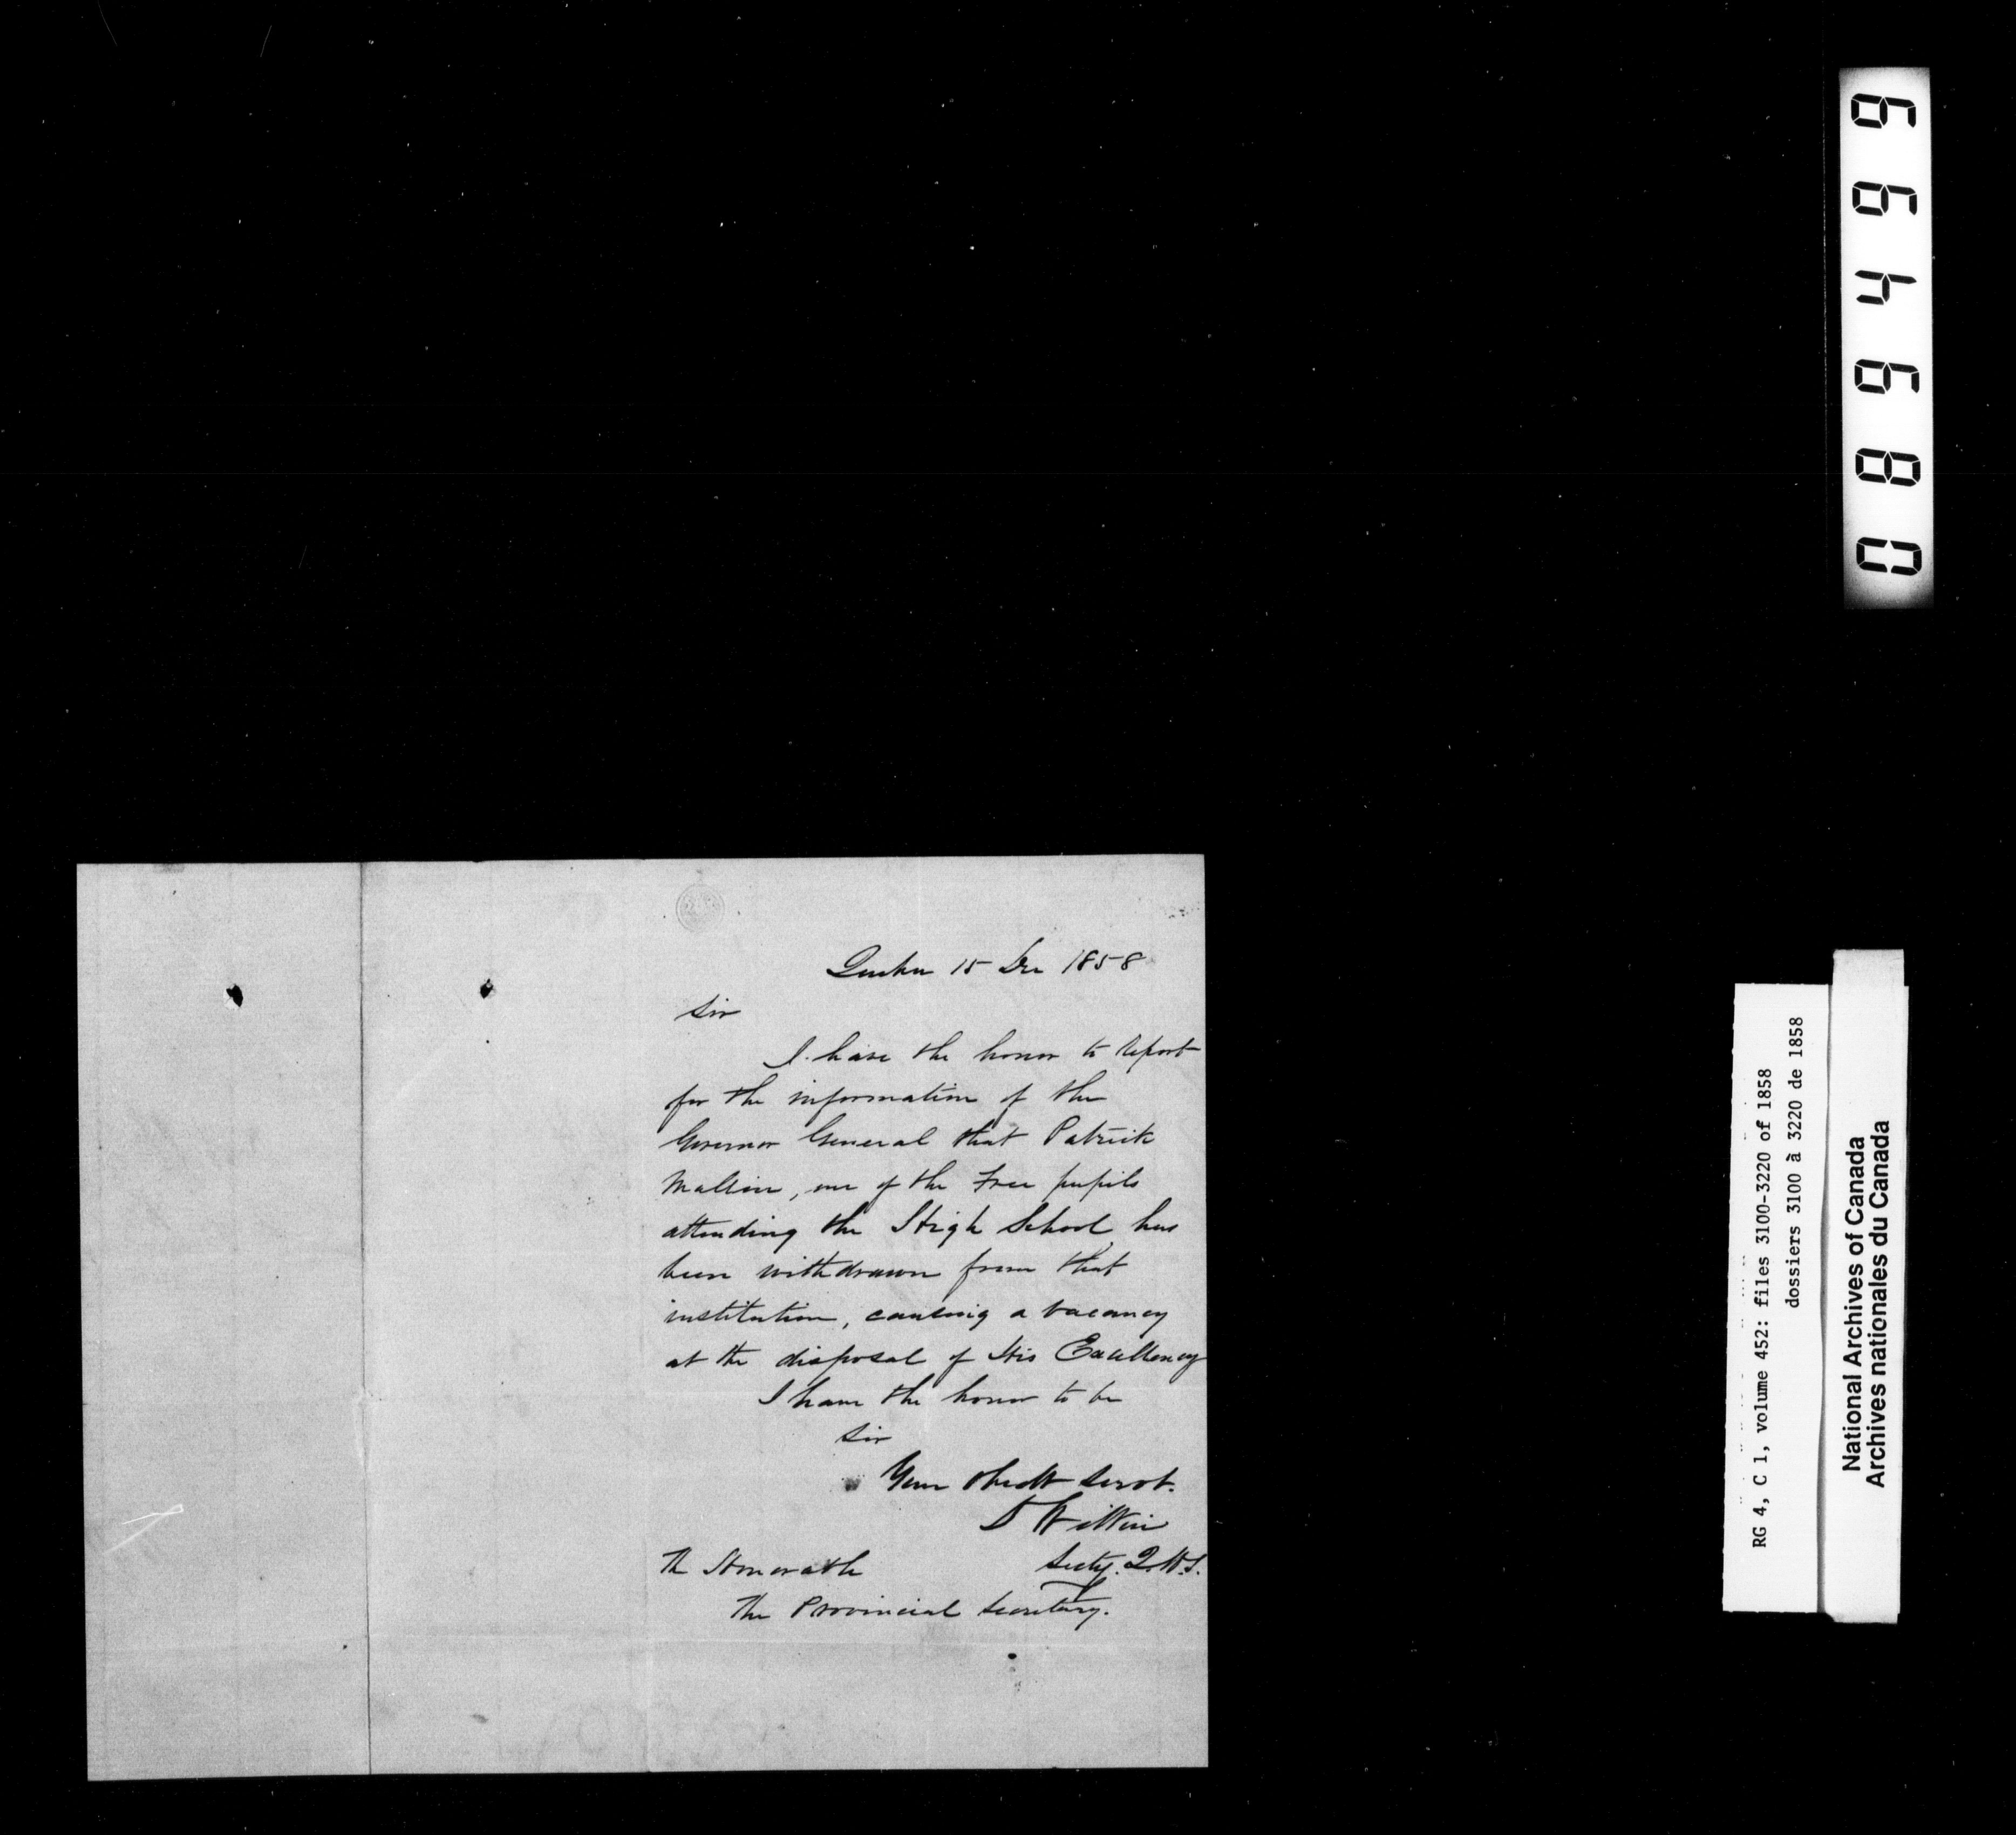 Quebec 15 Dec 1858
Sir
I have the honor to report
for the information of the
Governor General that Patrick
one of the Free pupils
attending the High School, has
been withdrawn from that
institution, causing a vacancy
at the disposal of His Excellency
I have the honor to be
Sir
Your Obedt Servt.
D Wilkie
Secty. Q.H.S.
The Honorable
The Provincial Secretary.
086499
RG 4, C 1, volume 452: files 3100-3220 of 1858
dossiers 3100 à 3220 de 1858
National Archives of Canada
Archives nationales du Canada